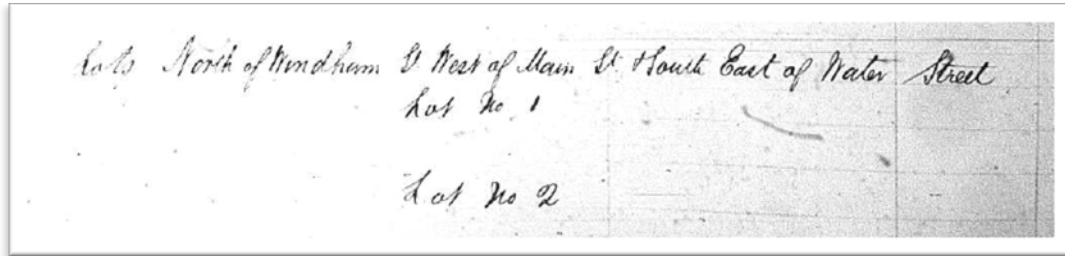 Lots North of Windham St West of Main St & South East of Water Street
Lot No 1
Lot No 2